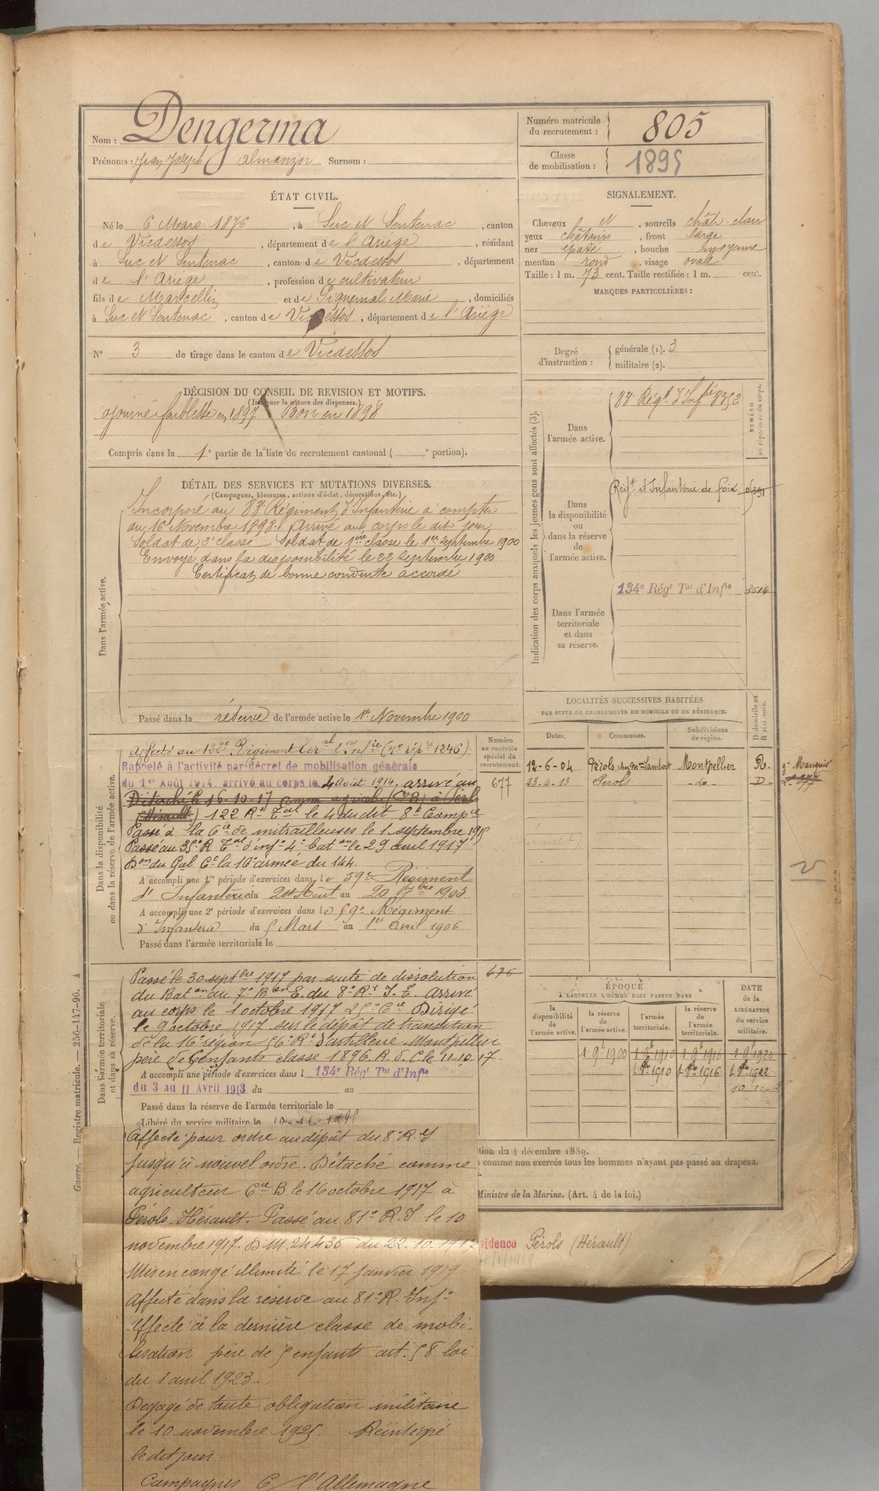 Nom : Dengerma
Prénoms : Jean Joseph Almanzor Surnom :
Numéro matricule du recrutement : 805
Classe de mobilisation : 1895
ÉTAT CIVIL.
Né le 6 Mars 1876, à Suc et Sentenac, canton
de Vicdessos, département de l'Ariège, résidant
à Suc et Sentenac, canton de Vicdessos, département
de l'Ariège, profession de cultivateur
fils de Marcellin et de Piquemal Marie, domiciliés
à Suc et Sentenac, canton de Vicdessos, département de l'Ariège
N° 3 de tirage dans le canton de Vicdessos
SIGNALEMENT.
Cheveux et, sourcils chât-clair
yeux châtains, front large
nez épaté, bouche moyenne
menton rond, visage ovale
Taille : 1 m. 73 cent. Taille rectifiée : 1 m. cent.
MARQUES PARTICULIÈRES :
Degré d'instruction : générale (1). 3
militaire (2).
DÉCISION DU CONSEIL DE REVISION ET MOTIFS.
(Indiquer la nature des dispenses.)
Ajourné faiblesse en 1897 Bon en 1898
Compris dans la 1e partie de la liste du recrutement cantonal ( e portion).
DÉTAIL DES SERVICES ET MUTATIONS DIVERSES.
(Campagnes, blessures, actions d'éclat, décorations, etc.)
Dans l'armée active.
Incorporé au 83e Régiment d'Infanterie à compter
du 16 Novembre 1898. Arrivé au corps le dit jour,
Soldat de 2e classe Soldat de 1ère classe le 1er Septembre 1900
Envoyé dans la disponibilité le 22 septembre 1900
Certificat de bonne conduite accordé
Passé dans la réserve de l'armée active le 1er Novembre 1900
Indication des corps auxquels les jeunes gens sont affectés (3).
Dans l'armée active.
83e Régt d'Infie 8352
Dans la disponibilité ou dans la réserve de l'armée active.
Régt d'Infanterie de Foix
Dans l'armée territoriale et dans sa réserve.
134e Régt Tal d'Infie 3514
LOCALITÉS SUCCESSIVES HABITÉES
PAR SUITE DE CHANGEMENTS DE DOMICILE OU DE RÉSIDENCE.
Dates. Communes. Subdivisions de région. D domicile ou R résidence.
12-6-04 Pérols Montpellier R.
23-4-13 Pérols -do- D-
Dans la disponibilité ou dans la réserve de l'armée active.
Numéro au contrôle spécial du recrutement.
Rappelé à l'activité par décret de mobilisation générale
du 1er Août 1914, arrivé au corps le 4 Août 1914, arrivé au
677
Détaché le 16-10-17
(Hérault) 122 R.t Tal le 4 du dit 8e Compie
Passé à la 6ie de mitrailleuses le 1 septembre 1915
Passé au 35e R. Tal d'inf. 4e bat on le 29 avril 1917
A accompli une 1re période d'exercices dans le 59e Régiment
d'Infanterie du 24 Août au 20 7bre 1903
A accompli une 2e période d'exercices dans le 59e Régiment
d'Infanterie du 5 Mars au 1er Avril 1906
Passé dans l'armée territoriale le
Dans l'armée territoriale et dans sa réserve.
676
Passé le 30 septbre 1917 par suite de dissolution
du Bat on au 7e Bon E. du 8e Rt I. E. Arrivé
au corps le 1 octobre 1917 25e Cie Dirigé
le 9 octobre 1917 sur le dépôt de transition
de la 16e région 56e Rt d'artillerie Montpellier
père de 5 enfants classe 1896. R. d. C. le 11-10-17.
A accompli une période d'exercices dans le 134e Régt Tal d'Infie
du 3 au 11 Avril 1913 du au
Passé dans la réserve de l'armée territoriale le
Libéré du service militaire le
ÉPOQUE
À LAQUELLE L'HOMME DOIT PASSER DANS
la disponibilité de l'armée active. la réserve de l'armée active. l'armée territoriale. la réserve de l'armée territoriale.
DATE de la LIBÉRATION du service militaire.
1 9bre 1900 1 9bre 1910 1 9bre 1916 1 9bre 1922
1 8bre 1910 1 8bre 1916 1 8bre 1922
Registre matricule. — 256-147-96. 4
Affecté pour ordre au dépôt du 8e R. I
jusqu'à nouvel ordre. Détaché comme
agriculteur Cie B le 16 octobre 1917 à
Pérols Hérault. Passé au 81e R. I le 10
novembre 1917. D M. 24436 du 22.10.1917
Mis en congé illimité le 17 janvier 1919
Affecté dans la réserve au 81e R. Inf.
Affecté à la dernière classe de mobi-
lisation père de 5 enfants art. 58 loi
du 1 avril 1923.
Dégagé de toute obligation militaire
le 10 novembre 1925 Réintégré
le dit jour
Campagnes C / l'Allemagne
tion du 4 décembre 1889.
comme non exercés tous les hommes n'ayant pas passé au drapeau.
Ministre de la Marine. (Art. 4 de la loi.)
sidence Pérols (Hérault)